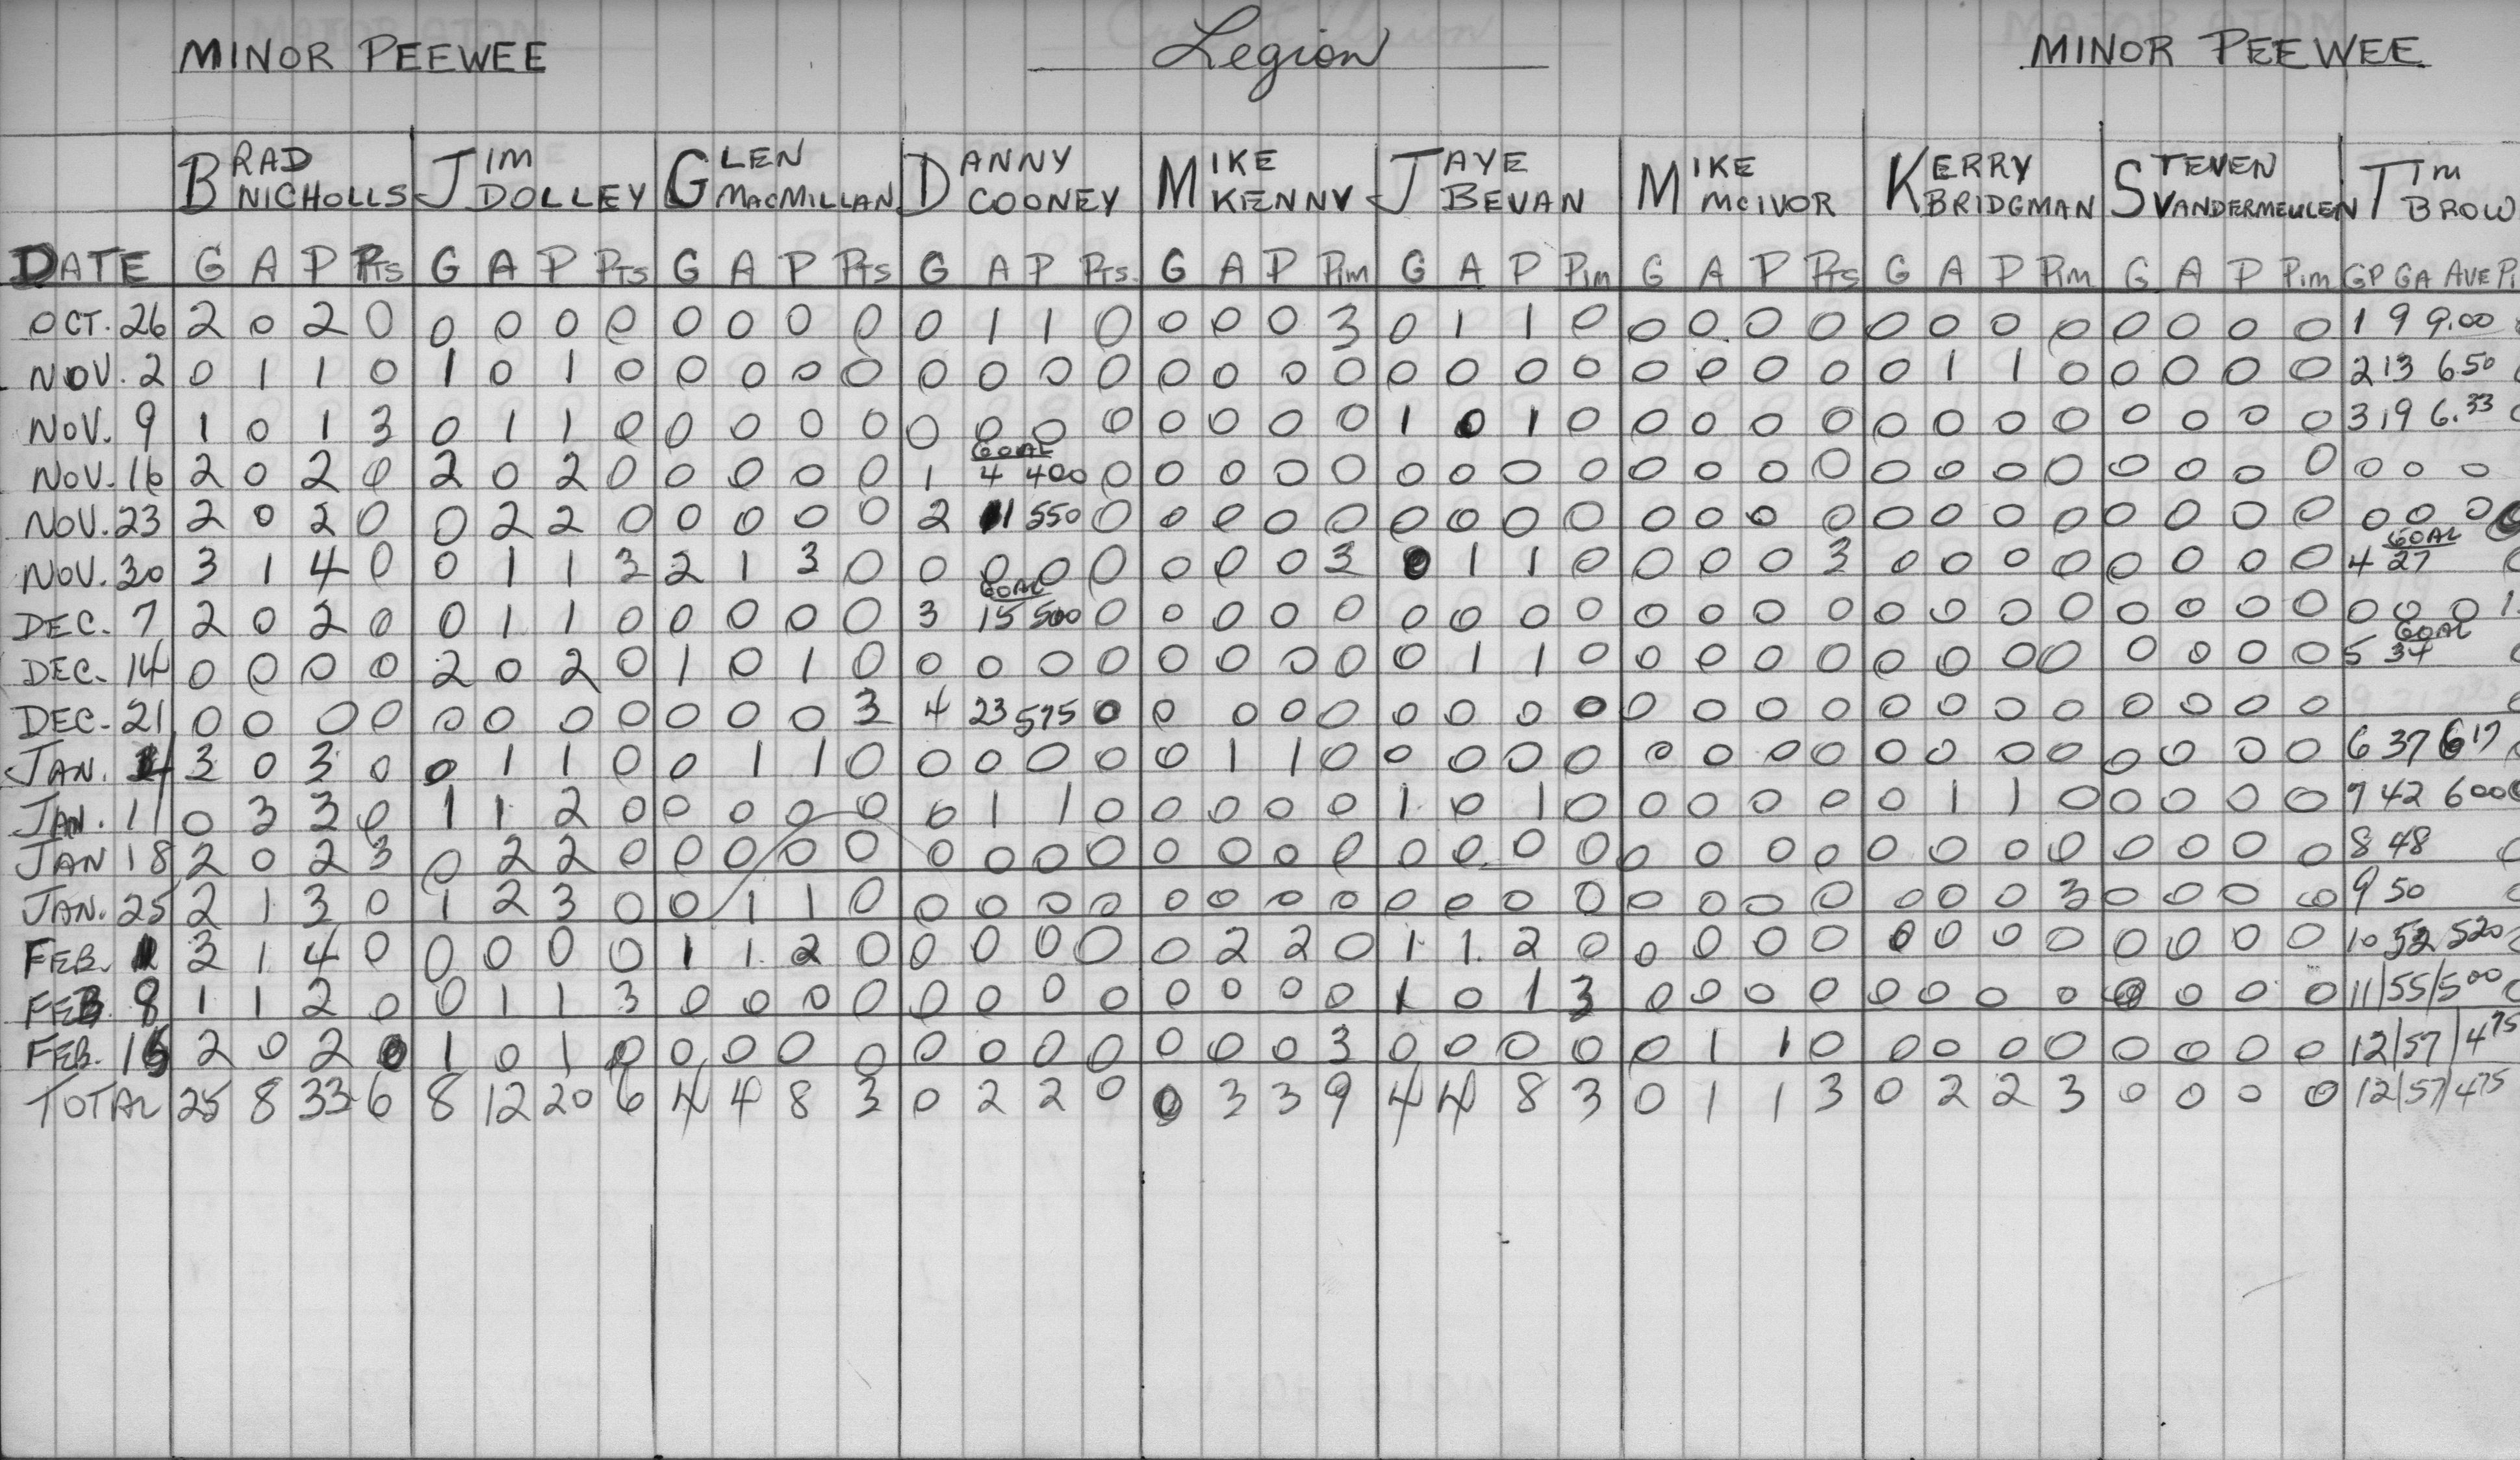 MINOR PEEWEE Legion MINOR PEEWEE
BRAD NICHOLLS JIM DOLLEY GLEN MACMILLAN DANNY COONEY MIKE KENNY JAYE BEVAN MIKE MCIVOR KERRY BRIDGMAN STEVEN VANDERMEULEN TIM BROW
DATE G A P PTS G A P PTS G A P PTS G A P PTS. G A P PIM G A P PIM G A P PTS G A P PIM G A P PIM GP GA AVE PI
OCT. 26 2 0 2 0 0 0 0 0 0 0 0 0 0 1 1 0 0 0 0 3 0 1 1 0 0 0 0 0 0 0 0 0 0 0 0 0 1 9 9.00
NOV. 2 0 1 1 0 1 0 1 0 0 0 0 0 0 0 0 0 0 0 0 0 0 0 0 0 0 0 0 0 0 1 1 0 0 0 0 0 2 13 6.50
NOV. 9 1 0 1 3 0 1 1 0 0 0 0 0 0 0 0 0 0 0 0 0 1 0 1 0 0 0 0 0 0 0 0 0 0 0 0 0 3 19 6.33
GOAL
NOV. 16 2 0 2 0 2 0 2 0 0 0 0 0 1 4 400 0 0 0 0 0 0 0 0 0 0 0 0 0 0 0 0 0 0 0 0 0 0 0 0
NOV. 23 2 0 2 0 0 2 2 0 0 0 0 0 2 11 550 0 0 0 0 0 0 0 0 0 0 0 0 0 0 0 0 0 0 0 0 0 0 0 0
GOAL
NOV. 30 3 1 4 0 0 1 1 3 2 1 3 0 0 0 0 0 0 0 0 3 0 1 1 0 0 0 0 3 0 0 0 0 0 0 0 0 4 27
GOAL
DEC. 7 2 0 2 0 0 1 1 0 0 0 0 0 3 15 500 0 0 0 0 0 0 0 0 0 0 0 0 0 0 0 0 0 0 0 0 0 0 0 0 1
GOAL
DEC. 14 0 0 0 0 2 0 2 0 1 0 1 0 0 0 0 0 0 0 0 0 0 1 1 0 0 0 0 0 0 0 0 0 0 0 0 0 5 34
DEC. 21 0 0 0 0 0 0 0 0 0 0 0 3 4 23 575 0 0 0 0 0 0 0 0 0 0 0 0 0 0 0 0 0 0 0 0 0
JAN. 4 3 0 3 0 0 1 1 0 0 1 1 0 0 0 0 0 0 1 1 0 0 0 0 0 0 0 0 0 0 0 0 0 0 0 0 0 6 37 617
JAN. 11 0 3 3 0 1 1 2 0 0 0 0 0 0 1 1 0 0 0 0 0 1 0 1 0 0 0 0 0 0 1 1 0 0 0 0 0 7 42 600
JAN 18 2 0 2 3 0 2 2 0 0 0 0 0 0 0 0 0 0 0 0 0 0 0 0 0 0 0 0 0 0 0 0 0 0 0 0 0 8 48
JAN. 25 2 1 3 0 1 2 3 0 0 1 1 0 0 0 0 0 0 0 0 0 0 0 0 0 0 0 0 0 0 0 0 3 0 0 0 0 9 50
FEB. 1 3 1 4 0 0 0 0 0 1 1 2 0 0 0 0 0 0 2 2 0 1 1 2 0 0 0 0 0 0 0 0 0 0 0 0 0 10 52 520
FEB 8 1 1 2 0 0 1 1 3 0 0 0 0 0 0 0 0 0 0 0 0 1 0 1 3 0 0 0 0 0 0 0 0 0 0 0 0 11/55/500
FEB. 15 2 0 2 0 1 0 1 0 0 0 0 0 0 0 0 0 0 0 0 3 0 0 0 0 0 1 1 0 0 0 0 0 0 0 0 0 12/57/475
TOTAL 25 8 33 6 8 12 20 6 4 4 8 3 0 2 2 0 0 3 3 9 4 4 8 3 0 1 1 3 0 2 2 3 0 0 0 0 12/57/475